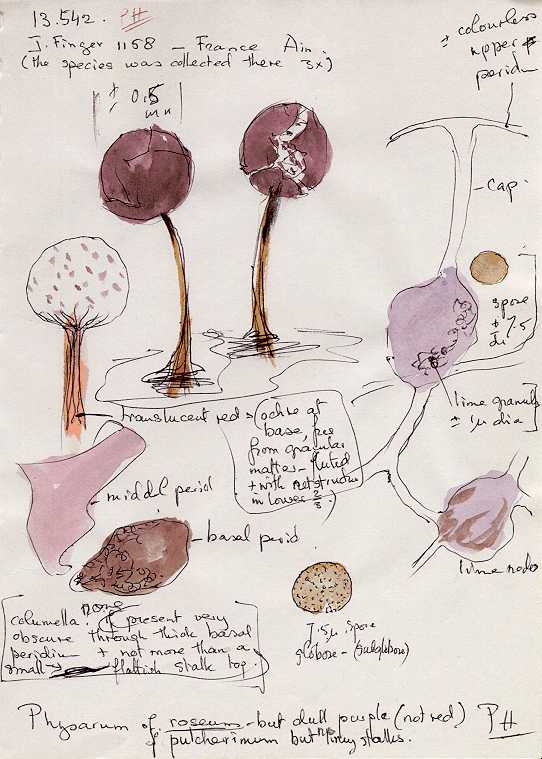 13.542. PH
J. Finger 1158 – France Ain.
(the species was collected there 3x)
± 0.5
mm
± colourless
upper
perid
cap
spore
± 7.5
lime granules
± 1µ dia
translucent red
ochre at
base, free
from granular
matter – fluted
in lower 2/3.
middel perid
basal perid.
lime node
columella: none
If present very
obscure through thick basal
peridium + not more than a
small flattish stalk top.
7.5µ spore
globose – (subglobose)
Physarum cf roseum – but dull purple (not red) PH
cf pulcherrimum but stalks.